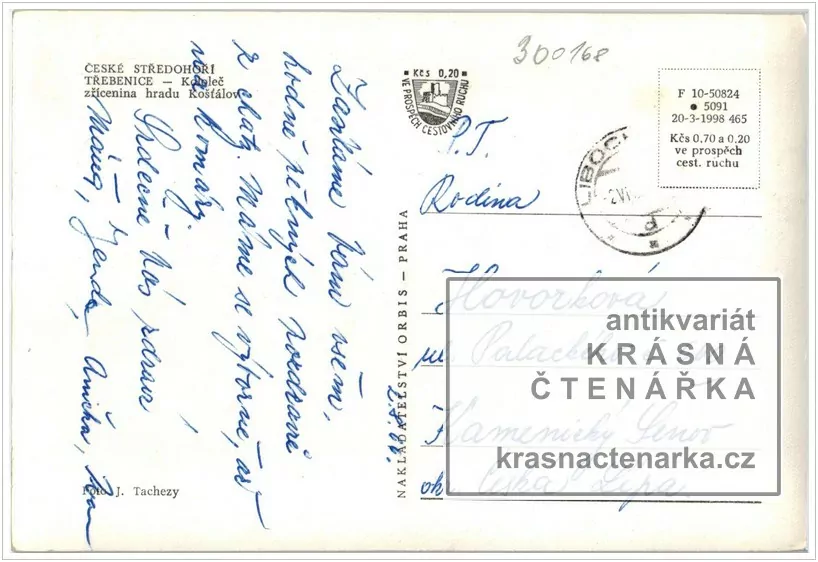 ČESKÉ STŘEDOHOŘÍ
TŘEBENICE — Košťálov
zřícenina hradu Košťálov
Foto J. Tachezy
Zasíláme Vám všem,
hodně pěkných pozdravů
z chaty. Máme se výborně, až
na komáry.
Srdečně Vás zdraví
Jenda, Anička,
2.8.66.
NAKLADATELSTVÍ ORBIS — PRAHA
Kčs 0,20
VE PROSPĚCH CESTOVNÍHO RUCHU
300168
F 10-50824
5091
20-3-1998 465
Kčs 0.70 a 0.20
ve prospěch
cest. ruchu
LIBOCH
P.T.
Rodina
Hovorková
ul. Palackého
Kamenický Šenov
okr. Česká Lípa
antikvariát
KRÁSNÁ
ČTENÁŘKA
krasnactenarka.cz